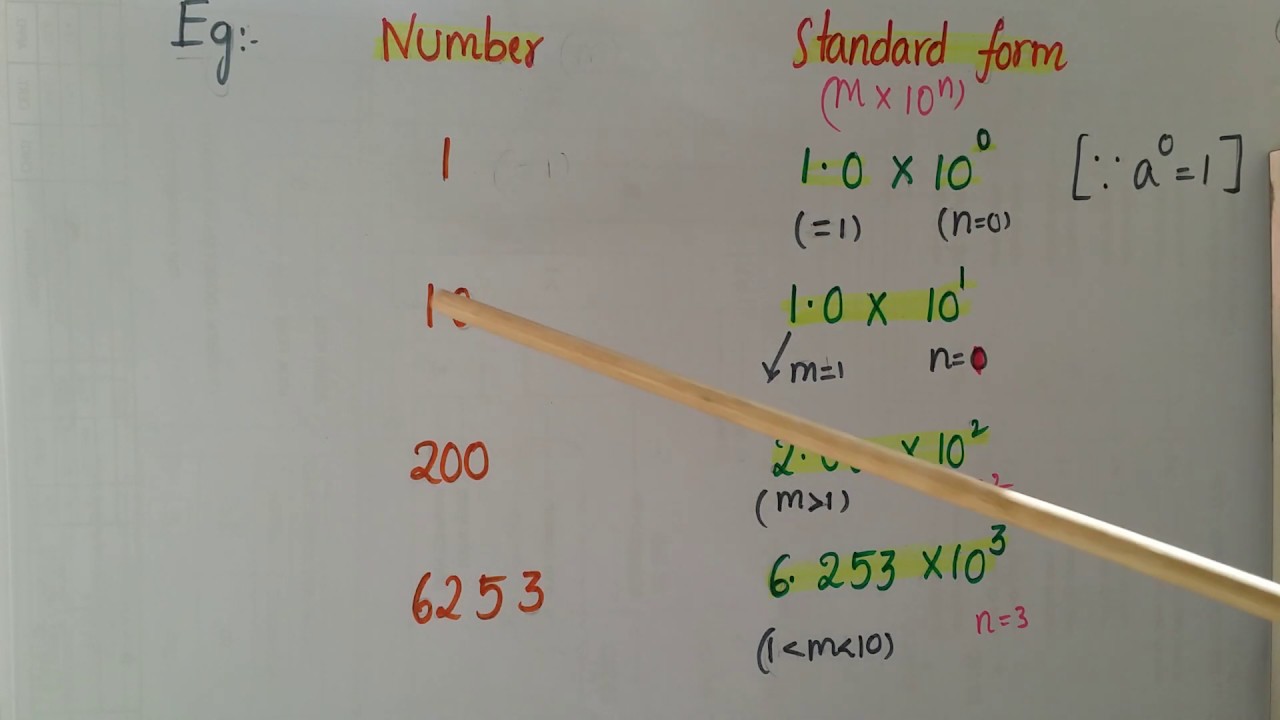 Eg:- Number Standard form
(m × 10ⁿ)
1 1.0 × 10⁰ [∵ a⁰=1]
(=1) (n=0)
10 1.0 × 10¹
m=1 n=0
200 2. × 10²
(m>1) 2
6253 6.253 ×10³
n=3
(1<m<10)